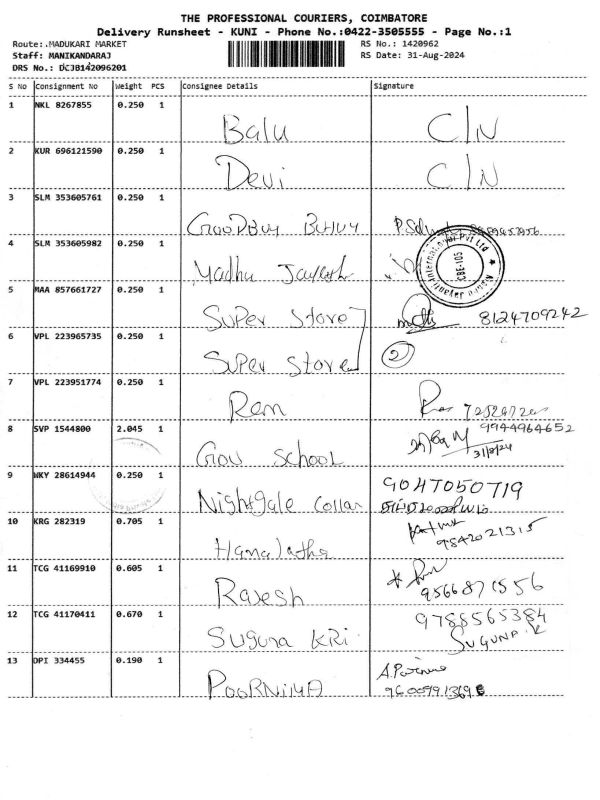 THE PROFESSIONAL COURIERS, COIMBATORE
Delivery Runsheet - KUNI - Phone No.:0422-3505555 - Page No.:1
Route:.MADUKARI MARKET RS No.: 1420962
Staff: MANIKANDARAJ RS Date: 31-Aug-2024
DRS No.: DCJB142096201
S No Consignment No Weight PCS Consignee Details Signature
1 NKL 8267855 0.250 1
Balu C/N
2 KUR 696121590 0.250 1
Devi C/N
3 SLM 353605761 0.250 1
4 SLM 353605982 0.250 1
Madhu
5 MAA 857661727 0.250 1
Super Store 8124709242
6 VPL 223965735 0.250 1
Super Store 2
7 VPL 223951774 0.250 1
Ram
8 SVP 1544800 2.045 1 9944964652
Gov School 31/8/24
9 WKY 28614944 0.250 1 9047050719
Nightgale Collar
10 KRG 282319 0.705 1
9842021315
11 TCG 41169910 0.605 1
Rajesh 9566871556
12 TCG 41170411 0.670 1 9788565384
Suguna KRI SUGUNA.K
13 DPI 334455 0.190 1
POORNIMA